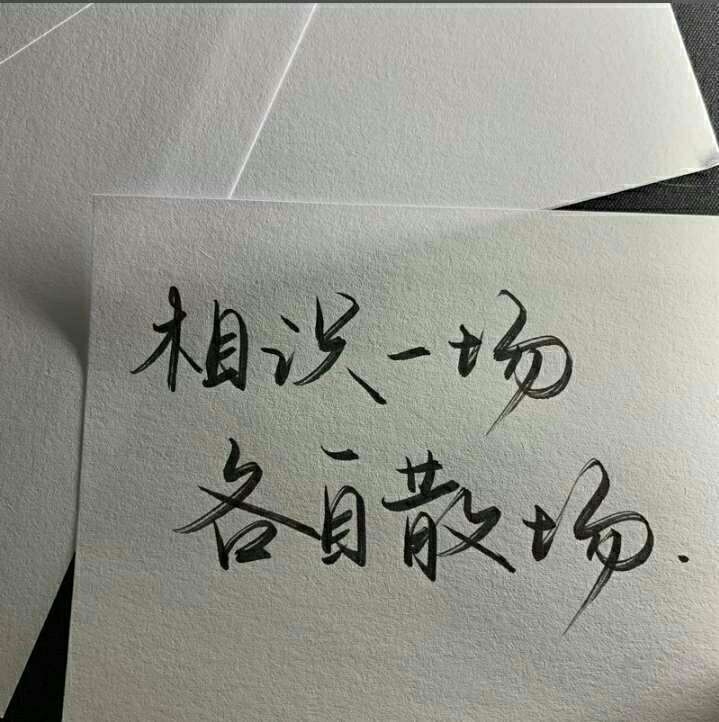 相识一场
各自散场.